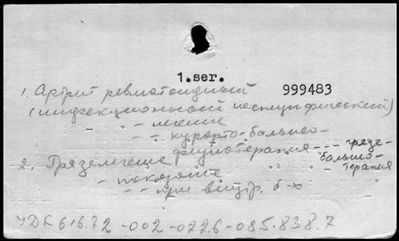 1.ser.
1. Артрит ревматоидный 999483
(инфекционный неспецифический)
- " - лечение
- " - курорто-бальнео-
физиотерапия --- грязе-
2. Грязелечение " бальнео-
- " - показание " терапия
- " - при внутр. б-х
УДК 616.72-002-0226-085.838.7